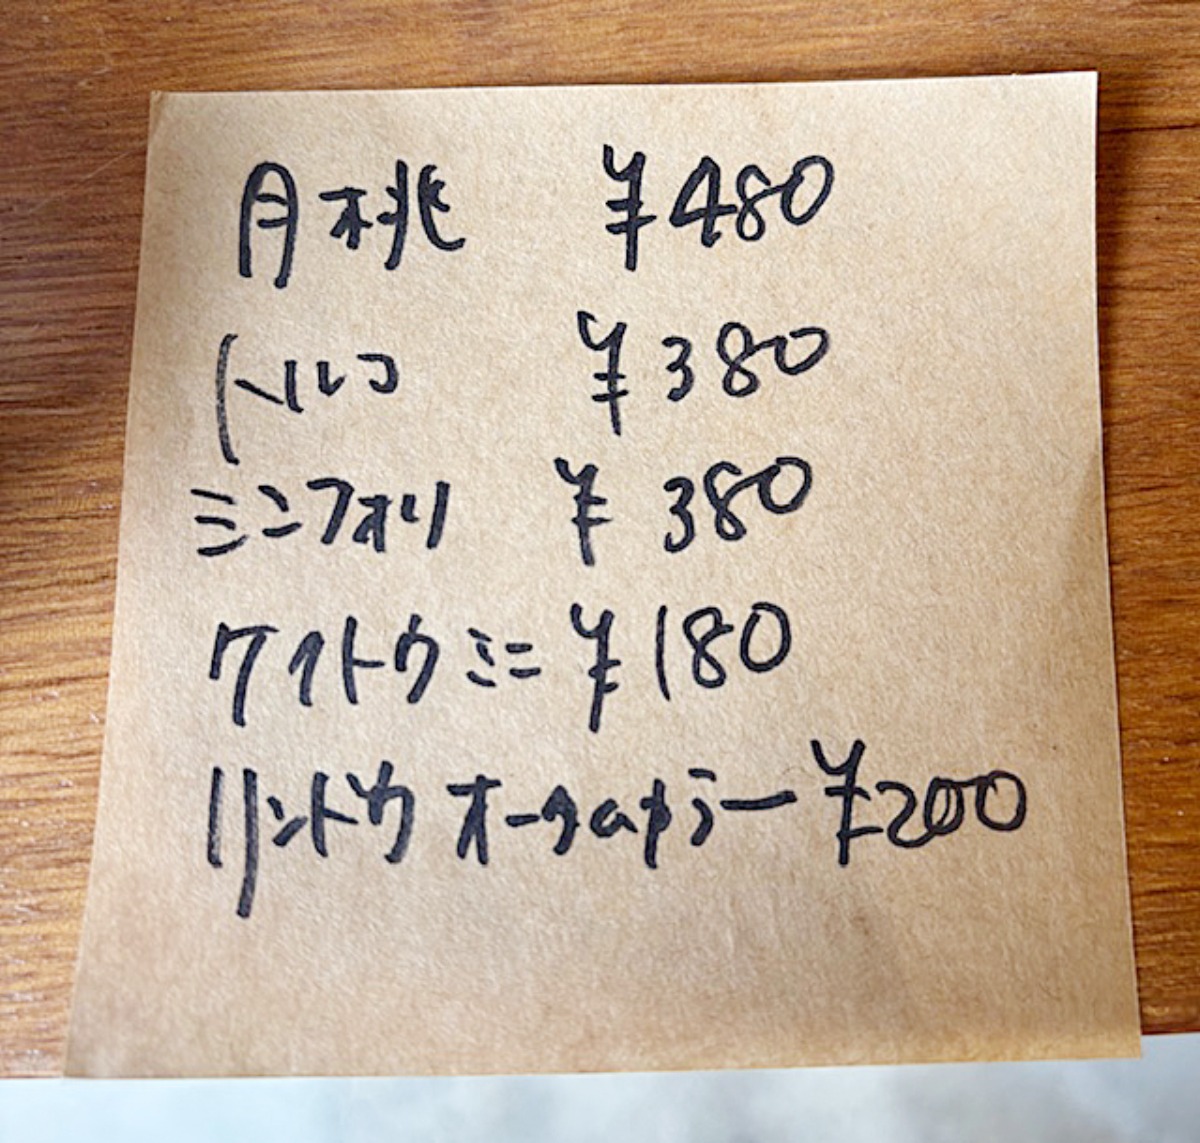 月桃 ¥480
トルコ ¥380
ミニフォリ ¥380
ケイトウミニ ¥180
リンドウ オータムカラー ¥200